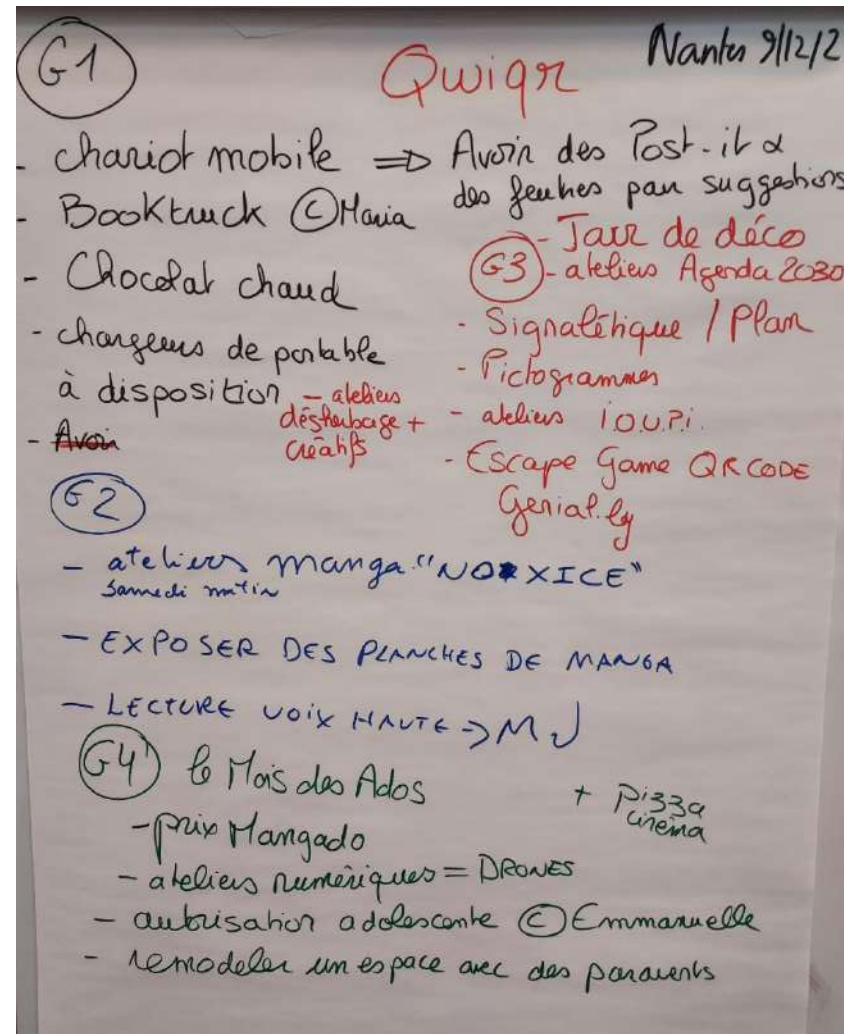 G1
Qwiqr
Nantes 9/12/2
- chariot mobile => Avoir des Post-it &
des feutres par suggestions
- Booktruck ©Maria
- Chocolat chaud
- chargeurs de portable
à disposition
- Avoir
G3
- Jarr de déco
- ateliers Agenda 2030
- Signalétique / Plan
- Pictogrammes
- ateliers i.o.u.p.i.
- Escape Game QR CODE
Genial.ly
- ateliers
désherbage +
créatifs
G2
- ateliers manga "NOXICE"
samedi matin
- EXPOSER DES PLANCHES DE MANGA
- LECTURE VOIX HAUTE -> MJ
G4 le Mois des Ados
+ pizza
cinéma
- prix Mangado
- ateliers numériques = DRONES
- autorisation adolescente © Emmanuelle
- remodeler un espace avec des paravents